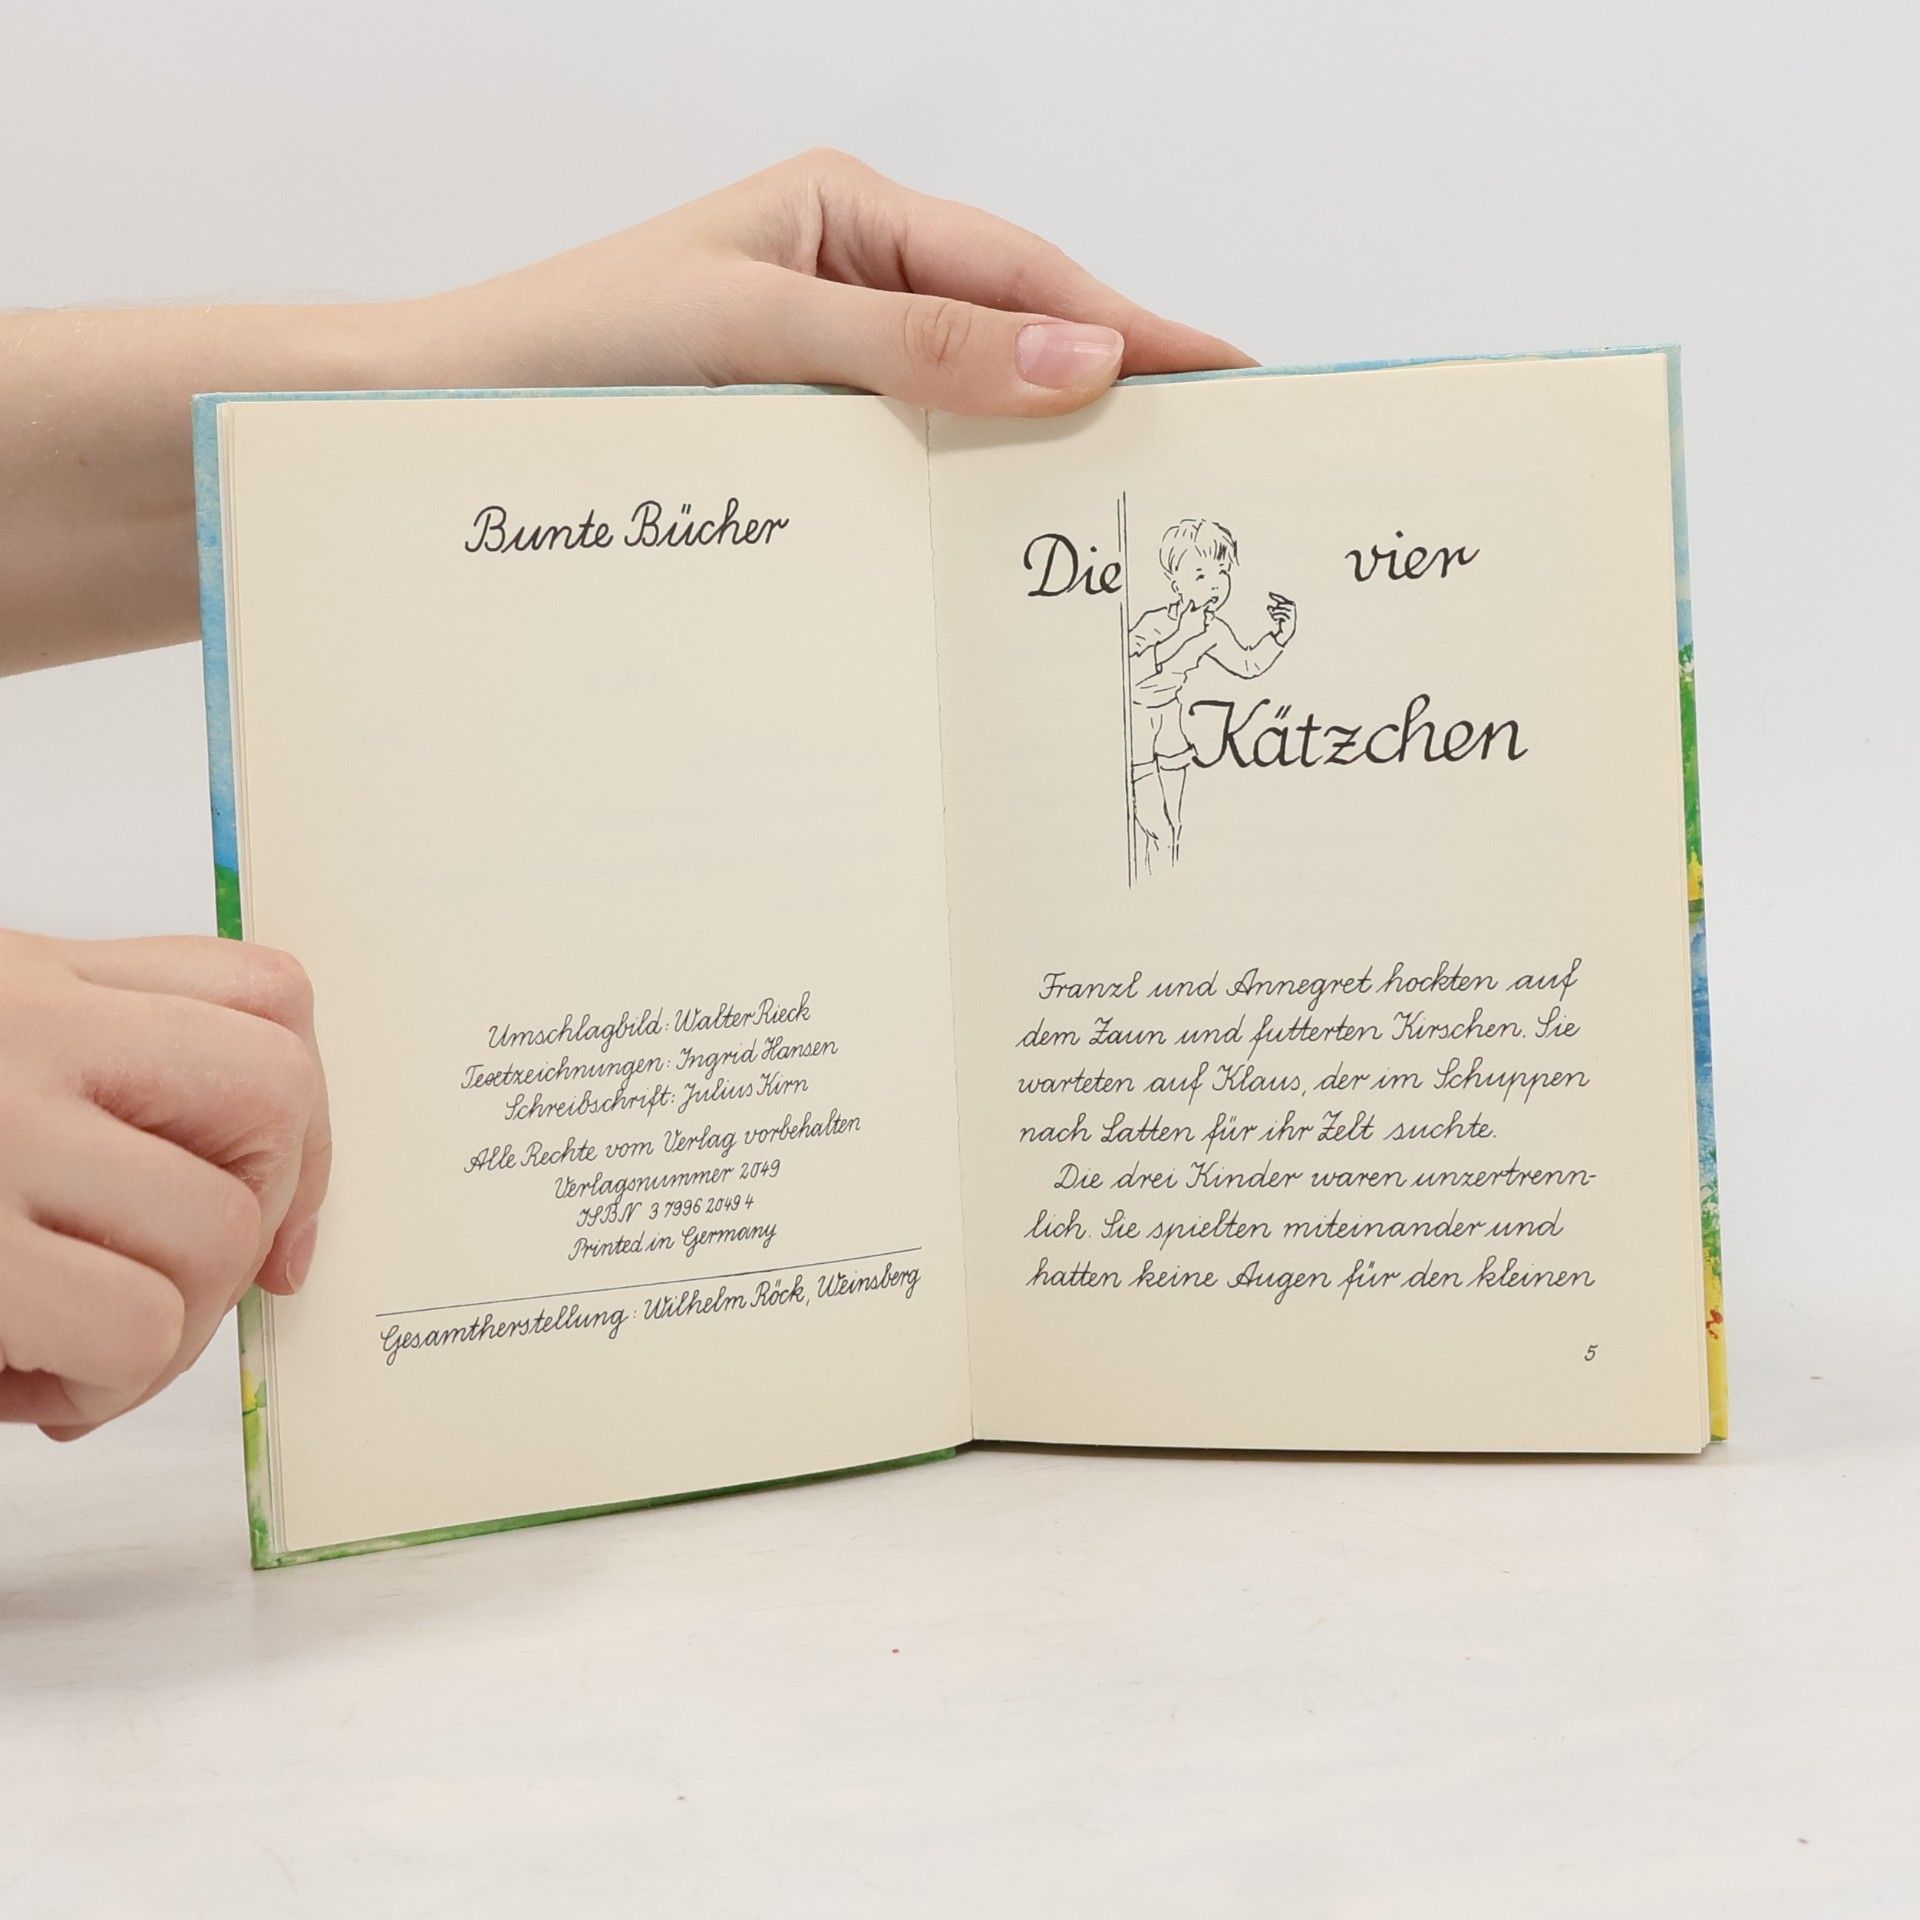 Bunte Bücher
Umschlagbild: Walter Rieck
Textzeichnungen: Ingrid Hansen
Schreibschrift: Julius Kirn
Alle Rechte vom Verlag vorbehalten
Verlagsnummer 2049
ISBN 3 7996 2049 4
Printed in Germany
Gesamtherstellung: Wilhelm Röck, Weinsberg
Die vier
Kätzchen
Franzl und Annegret hockten auf
dem Zaun und futterten Kirschen. Sie
warteten auf Klaus, der im Schuppen
nach Latten für ihr Zelt suchte.
Die drei Kinder waren unzertrenn-
lich. Sie spielten miteinander und
hatten keine Augen für den kleinen
5